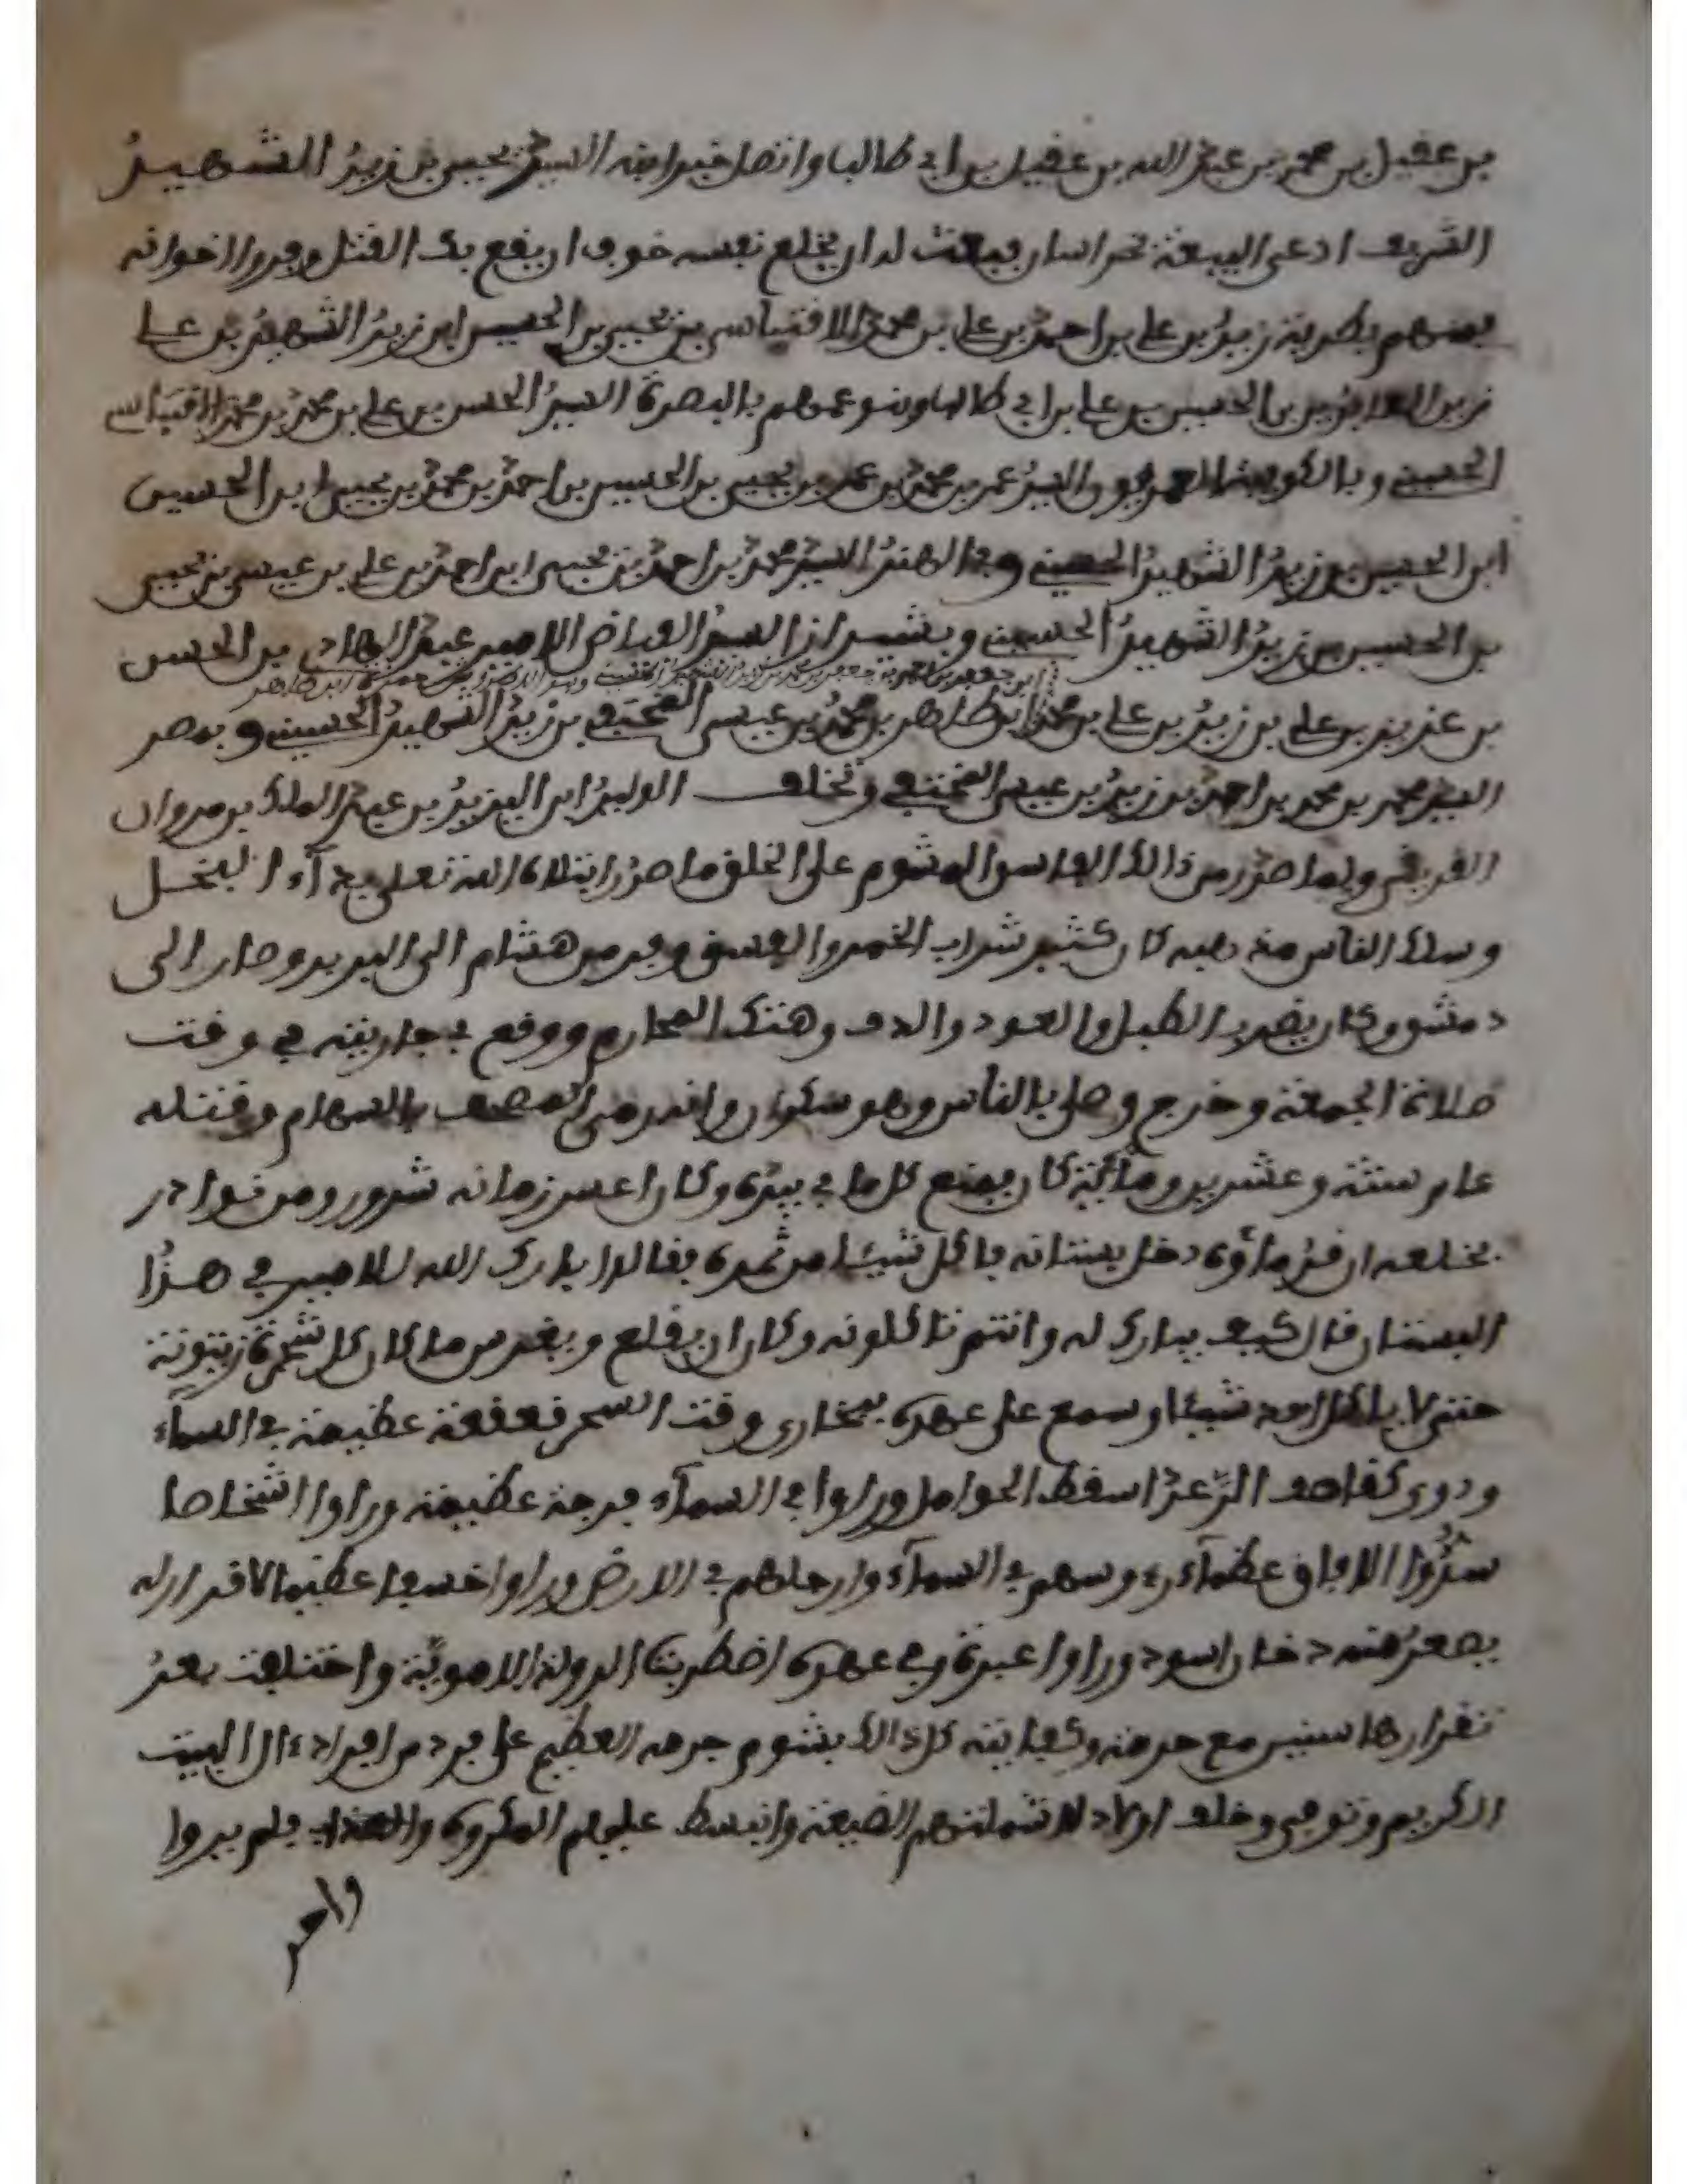 بن عقيل بن محمد بن عبد الله بن عقيل بن ابي طالب واتصل خبر ابنه السيد يحيى بن زيد الشهيد
الشريف ادعى البيعة بخراسان فبعث له ان يخلع نفسه خوف ان يقع بك القتل وفروا اخوانه
بعضهم بطبرية زيد بن علي بن احمد بن علي بن محمد الاقساسي بن يحيى بن الحسين ابن زيد الشهيد بن علي
زين العابدين بن الحسين بن علي بن ابي طالب وبنو عمهم بالبصرة السيد الحسن بن علي بن محمد بن محمد الاقساسي
الحسيني وبالكوفة السيد عمر بن محمد بن عمر بن يحيى بن الحسين بن احمد بن محمد بن يحيى ابن الحسين
ابن الحسين بن زيد الشهيد الحسيني وبالهند السيد محمد بن احمد بن يحيى ابن احمد بن علي بن عيسى بن يحيى
بن الحسين بن زيد الشهيد الحسيني وبشيراز السيد القاضي الامير عبد الهادي بن الحسن
بن عزيز بن علي بن زيد بن علي بن محمد ابن طاهر بن محمد بن عيسى المختفي بن زيد الشهيد الحسيني وبمصر
السيد محمد بن محمد بن احمد بن زيد بن عيسى المختفي وتخلف الوليد ابن اليزيد بن عبد الملك بن مروان
القريشي ولما صدر من ذالك الفاسق المشوم على الخلق ما صدر ابتلاه الله تعلى بداء البخل
وسلك الناس منه صبه كان كثير شراب الخمر والفسق وفر من هشام الى البريد وصار الى
دمشق وكان يضرب الطبل والعود والدف وهتك المحارم ووقع بجاريته في وقت
صلاة الجمعة وخرج وصلى بالناس وهو سكران وانه رمى المصحف بالسهام وقتله
عام ستة وعشرين ومائية كان يمنع كل ما في يده وكان اعسر زمانه شرور ومن نوادر
بخله ان قدماؤه دخل بستانه باكل شيئا من ثمره فقالوا بارك الله للامير في هذا
البستان قال كيف يبارك له وانتم تاكلونه وكان ان يقلع ويغرس مكان كل شجرة زيتونة
حتى لا ياكل احد شيئا وسمع على عهده ببخارى وقت السحر قعقعة عظيمة في السماء
ودوي كقاصف الرعد اسقط الحوامل وراوا في السماء فرجة عظيمة وراوا اشخاصا
سدوا الافاق عظماء رءوسهم في السماء وارجلهم في الارض وراوا خسفا عظيما لا قرار له
يصعد منه دخان اسود وراوا عبرة وفي عهده اضطربت الدولة الاموية واختلفت بعد
تقرارها سنين مع حرمته وكفايته كل ذالك بشوم جرمه العظيم على فرد من افراد ءال البيت
الكريم وتوفي وخلف اولاد لا شملتهم الضيعة وانبسط عليهم المكروه والعذاب فلم يروا
واحد